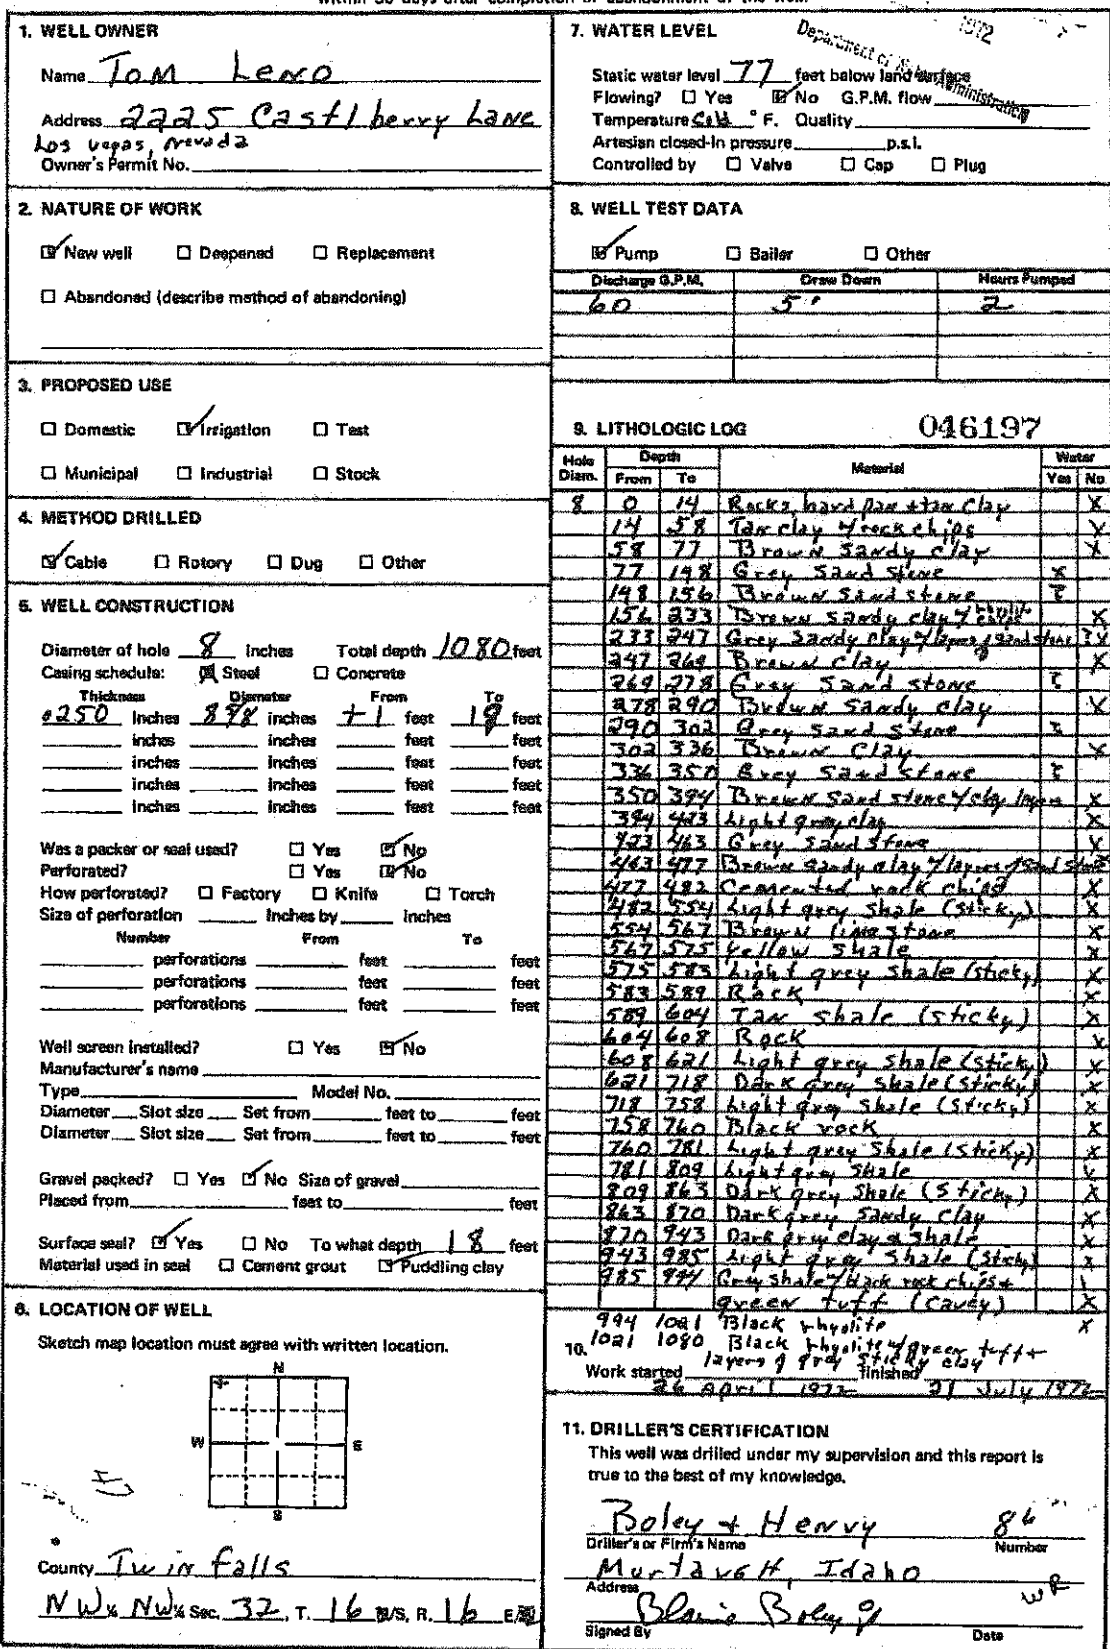 1. WELL OWNER
Name Tom Leno
Address 2225 Castlberry Lane
Las vegas, Nevada
Owner's Permit No.
2. NATURE OF WORK
New well Deepened Replacement
Abandoned (describe method of abandoning)
3. PROPOSED USE
Domestic Irrigation Test
Municipal Industrial Stock
4. METHOD DRILLED
Cable Rotory Dug Other
5. WELL CONSTRUCTION
Diameter of hole 8 inches Total depth 1080 feet
Casing schedule: Steel Concrete
Thickness Diameter From To
.250 inches 8 5/8 inches +1 feet 18 feet
inches inches feet feet
inches inches feet feet
inches inches feet feet
inches inches feet feet
Was a packer or seal used? Yes No
Perforated? Yes No
How perforated? Factory Knife Torch
Size of perforation inches by inches
Number From To
perforations feet feet
perforations feet feet
perforations feet feet
Well screen installed? Yes No
Manufacturer's name
Type Model No.
Diameter Slot size Set from feet to feet
Diameter Slot size Set from feet to feet
Gravel packed? Yes No Size of gravel
Placed from feet to feet
Surface seal? Yes No To what depth 18 feet
Material used in seal Cement grout Puddling clay
6. LOCATION OF WELL
Sketch map location must agree with written location.
N
W E
S
County Twin Falls
NW ¼ NW ¼ Sec. 32, T. 16 N/S, R. 16 E/W
7. WATER LEVEL
1972
Department of Water Administration
Static water level 77 feet below land surface
Flowing? Yes No G.P.M. flow
Temperature Cold ° F. Quality
Artesian closed-in pressure p.s.i.
Controlled by Valve Cap Plug
8. WELL TEST DATA
Pump Bailer Other
Discharge G.P.M. Draw Down Hours Pumped
60 5' 2
9. LITHOLOGIC LOG 046197
Hole Diam. Depth Material Water
From To Yes No
8 0 14 Rocks, hard pan + tan clay X
14 58 Tan clay w/rock chips X
58 77 Brown sandy clay X
77 148 Grey sand stone X
148 156 Brown sand stone
156 233 Brown sandy clay w/ chips X
233 247 Grey sandy clay w/layers of sand stone ? X
247 269 Brown clay X
269 278 Grey sand stone
278 290 Brown sandy clay X
290 302 Grey sand stone
302 336 Brown clay X
336 350 Grey sand stone
350 394 Brown sand stone w/clay layers X
394 423 Light grey clay X
423 463 Grey sand stone X
463 477 Brown sandy clay w/layers of sand stone
477 482 Cemented rock chips X
482 554 Light grey shale (sticky) X
554 567 Brown limestone X
567 575 Yellow shale X
575 583 Light grey shale (sticky) X
583 589 Rock X
589 604 Tan shale (sticky) X
604 608 Rock X
608 621 Light grey shale (sticky) X
621 718 Dark grey shale (sticky) X
718 758 Light grey shale (sticky) X
758 760 Black rock X
760 781 Light grey shale (sticky) X
781 809 Light grey shale X
809 863 Dark grey shale (sticky) X
863 870 Dark grey sandy clay X
870 943 Dark grey clay & shale X
943 985 Light grey shale (sticky) X
985 994 Grey shale w/black rock chips +
green tuff (cavey) X
994 1021 Black rhyolite X
1021 1080 Black rhyolite w/green tuff +
layers of grey sticky clay
10.
Work started finished
26 April 1972 21 July 1972
11. DRILLER'S CERTIFICATION
This well was drilled under my supervision and this report is
true to the best of my knowledge.
Boley + Henry 86
Driller's or Firm's Name Number
Murtaugh, Idaho
Address
WR
Signed By Date